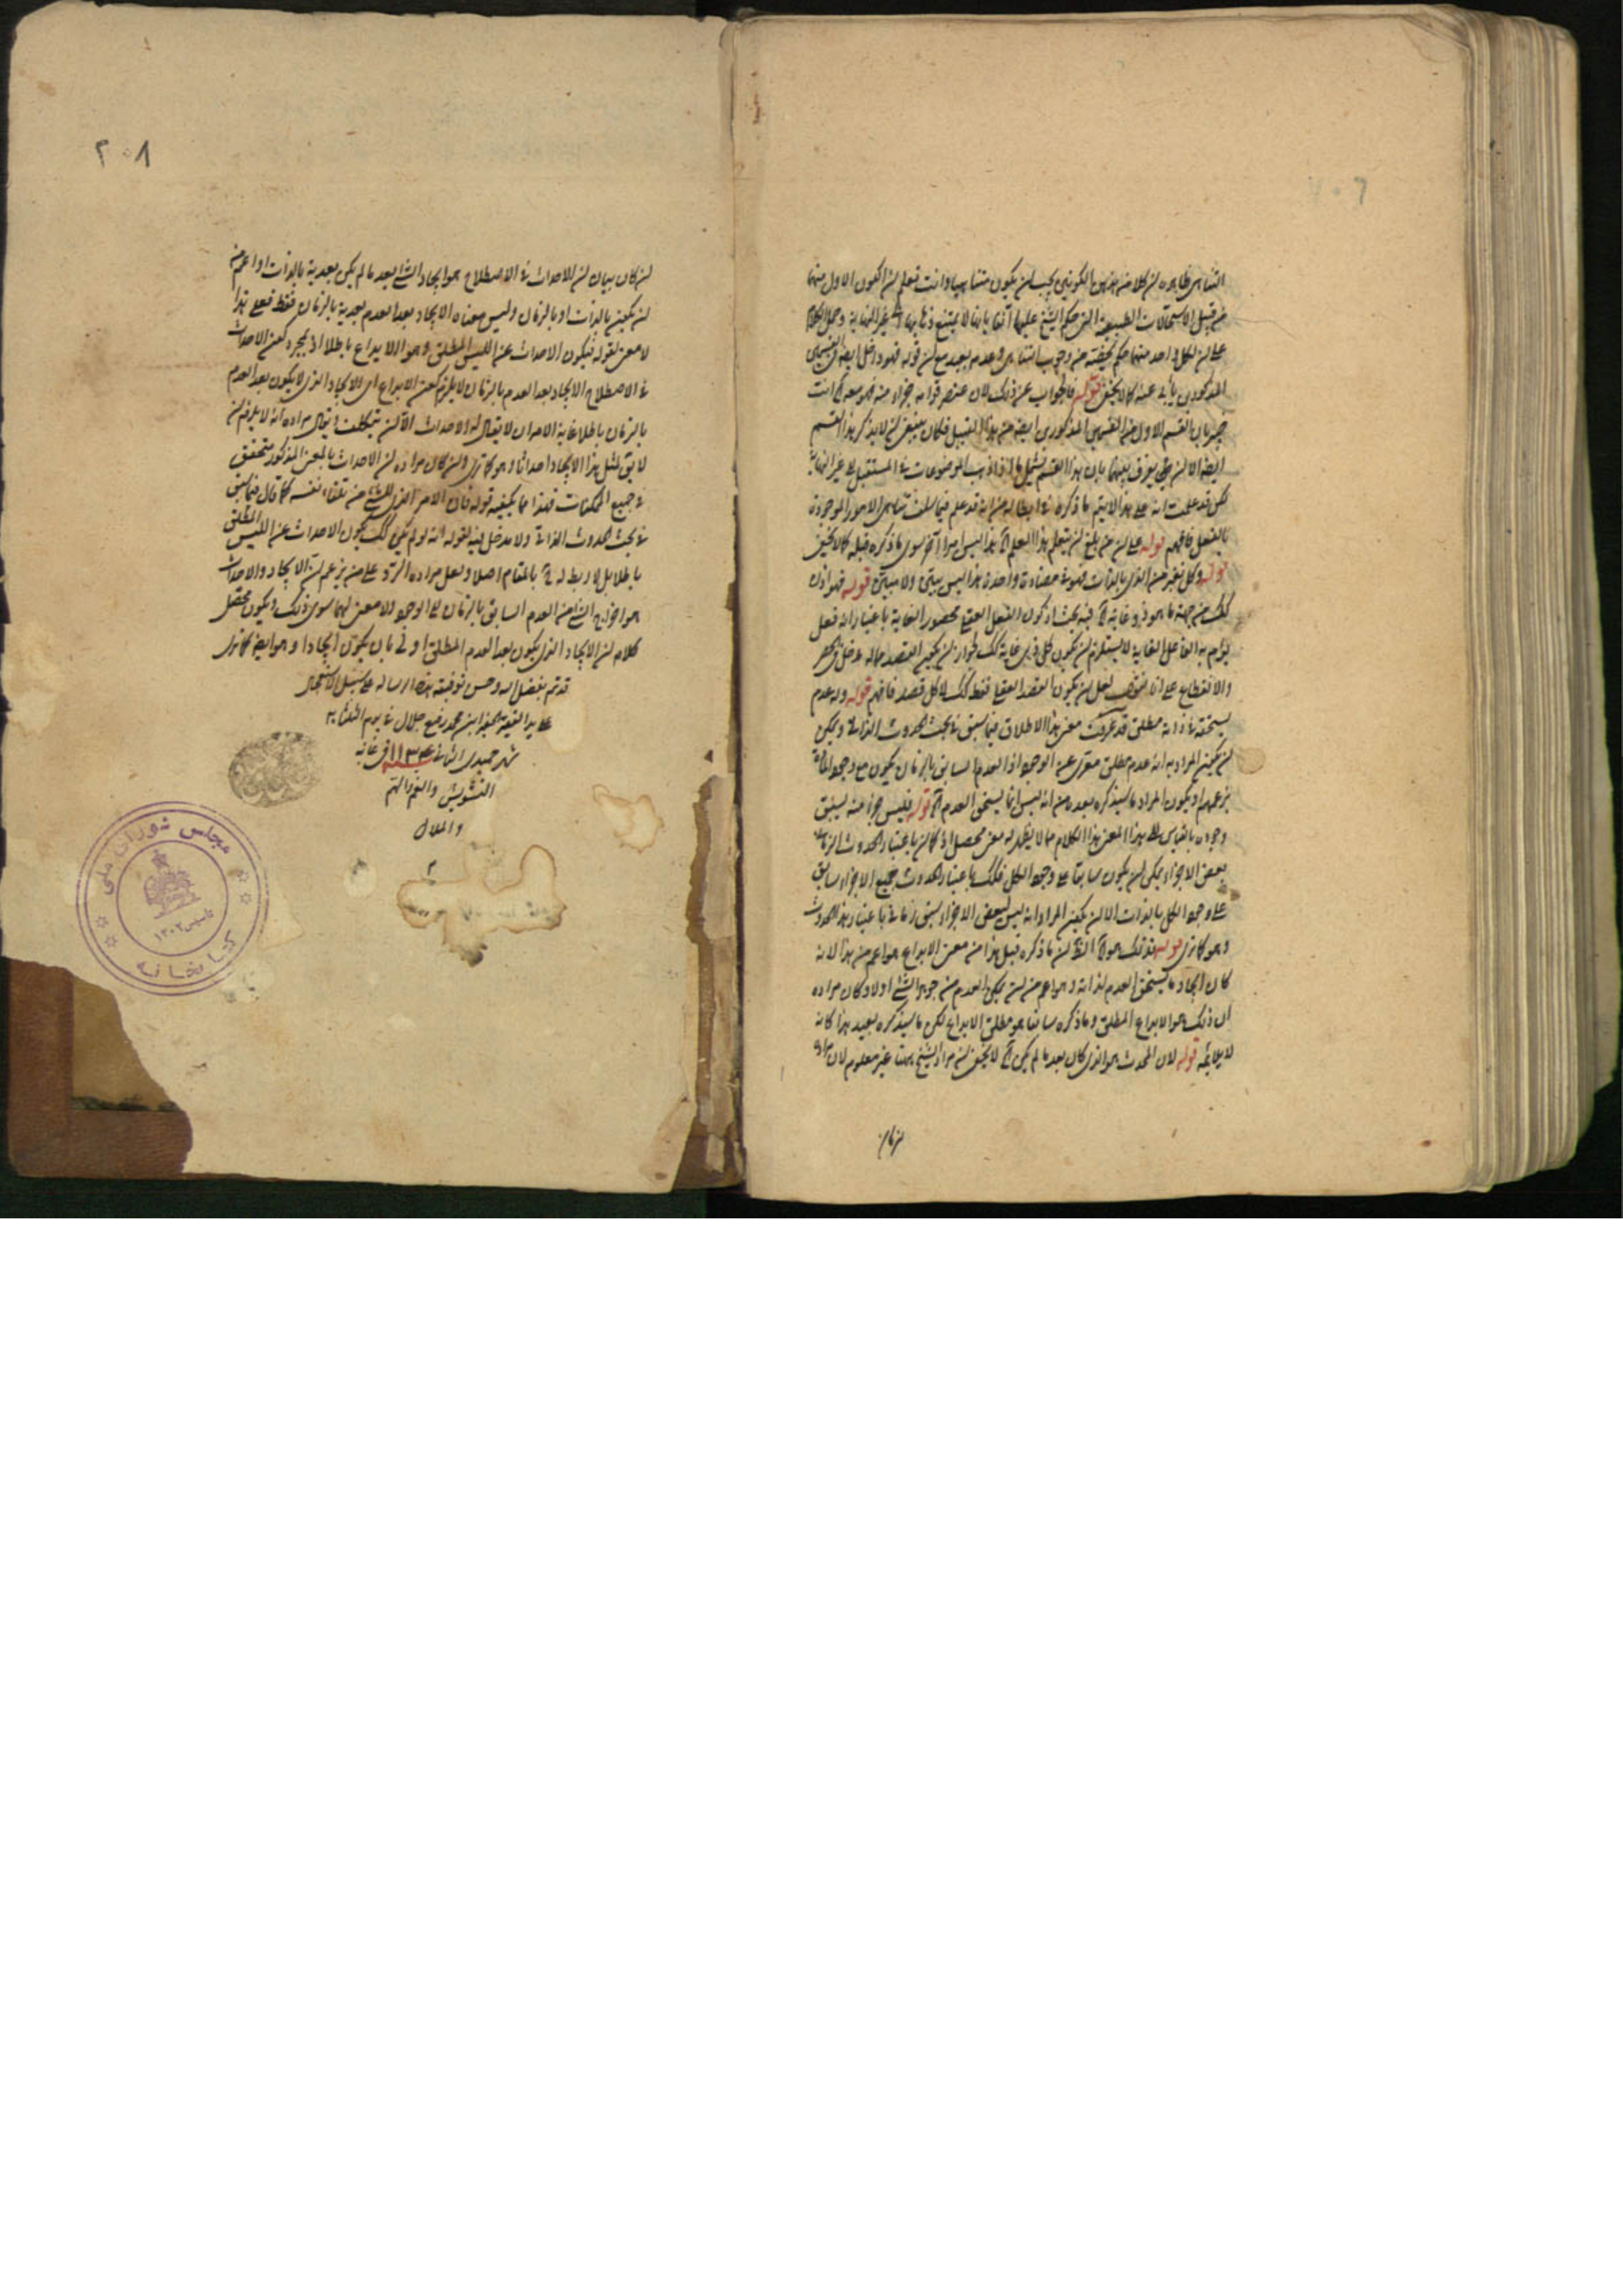 التناهى ظاهره ان كلا من هذين الكونين يجب ان يكون متناهيا وانت تعلم ان الكون الاول منهما
من قبيل الاستحالات الطبيعية التى حكم الشيخ عليها آنفا بانها لا يمتنع ذهابها الى غير النهاية وحمل الكلام
على ان لكل واحد منهما حكم يخصه من وجوب التناهى وعدمه بعيد مع ان قوله فهو داخل ايضا فى القسمين
المذكورين يأبى عنه كما لا يخفى قوله فالجواب عن ذلك لان عنصر قوامه جزء منه فهو معه الخ انت
خبير بان القسم الاول من القسمين المذكورين ايضا من هذا القبيل فكان ينبغى ان لا يذكر هذا القسم
ايضا الا ان يفرق بينهما بان هذا القسم يشمل ما اذا ذهب الموضوعات فى المستقبل الى غير النهاية
لكن قد علمت انه على هذا لا يتم ما ذكره فى ابطاله من انه قد علم فيما سلف تناهى الامور الموجودة
بالفعل فافهم قوله على ان من بلغ ان يتعلم هذا العلم الخ هذا ليس امرا آخر سوى ما ذكره قبله كما لا يخفى
قوله وكل تغير من الذى بالذات فهو فى مضادة واحدة هذا ليس ببيّن ولا مبيّن قوله فهو اذن
كذلك من جهة ما هو ذو غاية الخ فيه بحث اذ كون الفعل العقلى محصور الغاية باعتبار انه فعل
يؤم به الفاعل الغاية لا يستلزم ان يكون كل ذى غاية كذلك لجواز ان يكون القصد مما له دخل فى الحصر
والانقطاع على ان لقصد لعل ان يكون القصد العقلى فقط كذلك لا كل قصد فافهم قوله وله عدم
يستحقه فى ذاته مطلق قد عرفت معنى هذا الاطلاق فيما سبق فى بحث الحدوث الذاتى ويمكن
ان يكون المراد به انه عدم مطلق متعرى عن الوجود اذ العدم السابق بالزمان يكون مع وجود المادة
بزعمهم او يكون المراد ما سيذكره بعده من انه ليس انما يستحق العدم الخ قوله فليس جزء منه يسبق
وجوده بالقياس الى هذا المعنى هذا الكلام مما لا يظهر له معنى محصل اذ كما ان باعتبار الحدوث الزمانى
بعض الاجزاء يمكن ان يكون سابقا على وجود الكل فكذلك باعتبار الحدوث جميع الاجزاء سابق
على وجود الكل بالذات الا ان يكون المراد انه ليس لبعض الاجزاء سبق زمانى باعتبار هذا الحدوث
وهو كما ترى قوله فذلك هو الخ الظ ان ما ذكره قبل هذا من معنى الابداع هو اعم من هذا لانه
كان ايجاد ما يستحق العدم لذاته وهو اعم من ان يمكن العدم من جوهر الشئ اولا وكان مراده
ان ذلك هو الابداع المطلق وما ذكره سابقا هو مطلق الابداع لكن ما سيذكره بعيد هذا كانه
لا يلائمه قوله لان المحدث هو الذى كان بعد ما لم يكن الخ لا يخفى ان مراد الشيخ ههنا غير معلوم لان مراده
ان كان
٢٠٨
ان كان بيان ان الاحداث فى الاصطلاح هو ايجاد الشئ بعد ما لم يكن بعدية بالذات او اعم من
ان يكون بالذات او بالزمان وليس معناه الايجاد بعد العدم بعدية بالزمان فقط فعلى هذا
لا معنى لقوله فيكون الاحداث عن الليس المطلق وهو الابداع باطلا اذ بمجرد كون الاحداث
فى الاصطلاح الايجاد بعد العدم بالزمان لا يلزم كون الابداع اى الايجاد الذى لا يكون بعد العدم
بالزمان باطلا غاية الامر ان لا يقال له الاحداث الا ان يتكلف ويقال مراده انه لا يلزم ان
لا يق لمثل هذا الايجاد احداثا وهو كما ترى وان كان مراده ان الاحداث بالمعنى المذكور متحقق
فى جميع الممكنات فهذا مما يكفيه قوله فان الامر الذى للشئ من تلقاء نفسه كما قال فيما سبق
فى بحث الحدوث الذاتى ولا مدخل فيه لقوله انه لو لم يكن كذلك يكون الاحداث عن الليس المطلق
باطلا بل لا ربط له ح بالمقام اصلا ولعل مراده الرد على من يزعم ان الايجاد والاحداث
هو اخراج الشئ من العدم السابق بالزمان الى الوجود ولا معنى لهما سوى ذلك ويكون محصل
كلامه ان الايجاد الذى يكون بعد العدم المطلق اولى بان يكون ايجادا وهو ايضا كما ترى
قد تم بفضل الله وحسن توفيقه هذه الرساله على سبيل الاستعجال
على يد الفقير ابن محمد رفيع جلال فى يوم الثلثا ٢٠
شهر جميدى الثانى سنة ١١٣٤ فى غاية
التشويش والغم والهم
والملال
م
مجلس شوراى ملى
تاسيس ١٣٠٢
كتابخانه